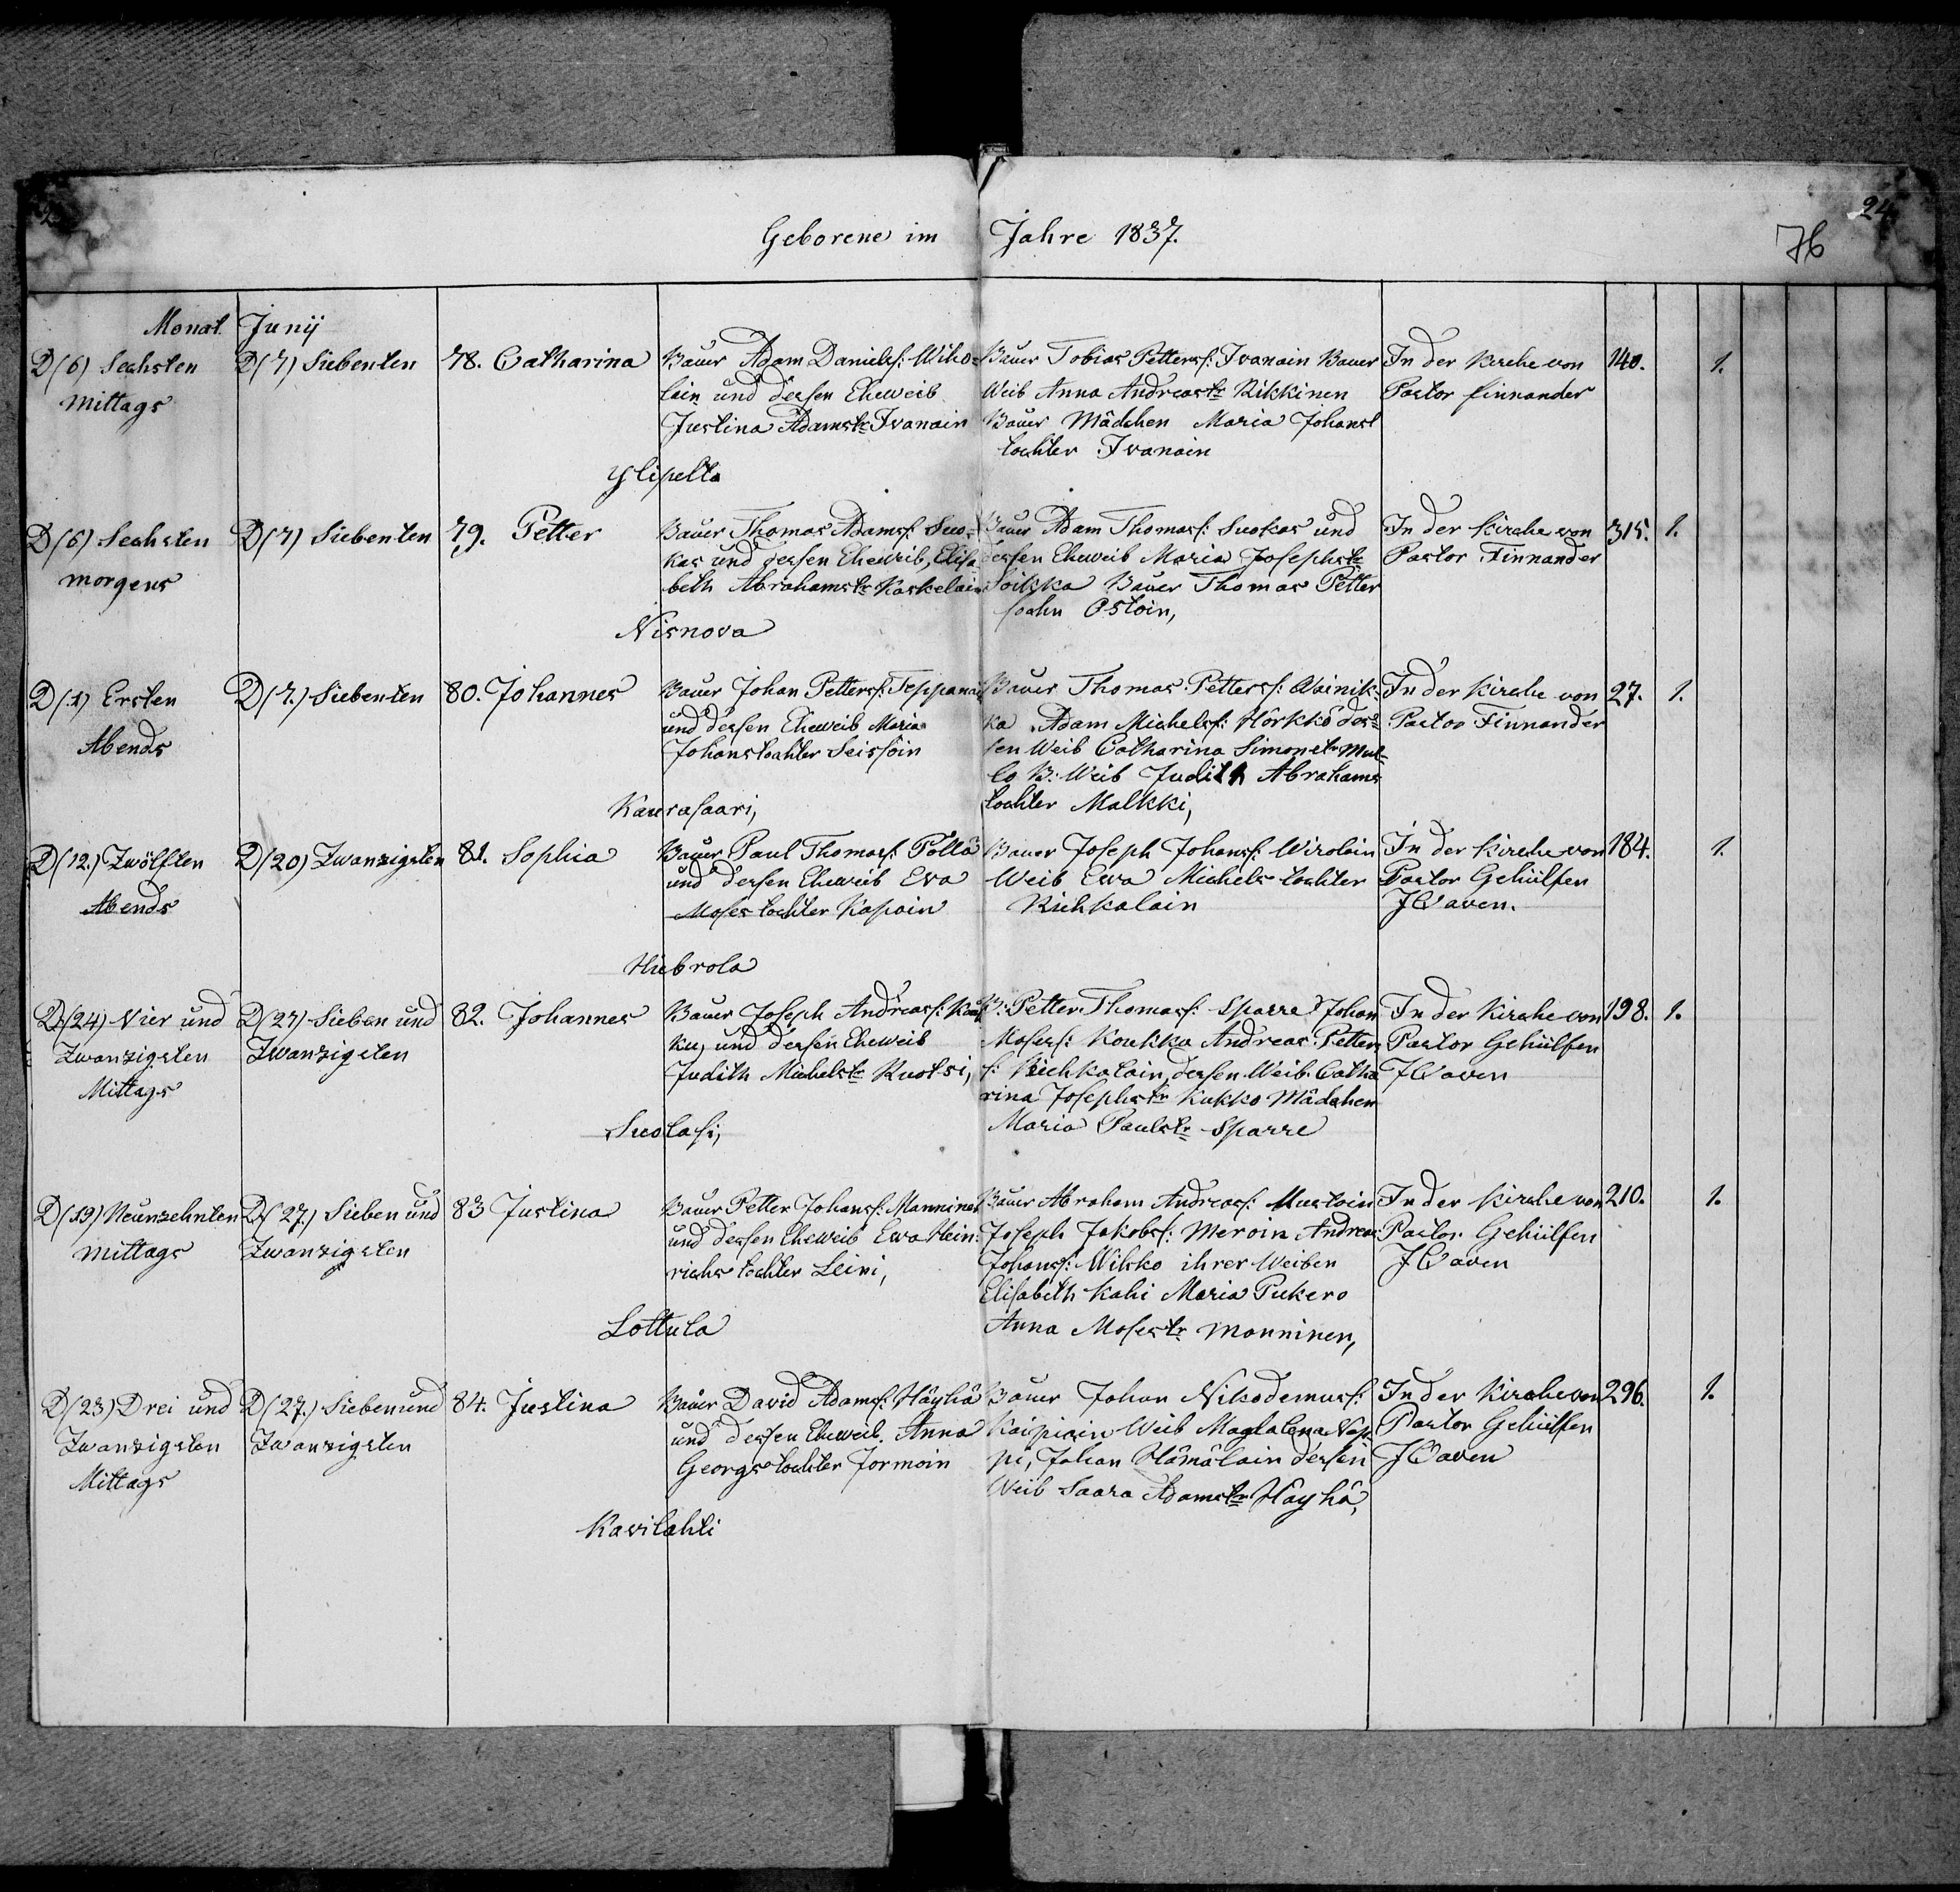 24
Geborene im Jahre 1837.
76
Monat Junij
D(6) Sechsten
Mittags
D(7) Siebenten
78. Catharina
Bauer Adam Daniels: Wiho-
lain und dessen Eheweib
Justina Adamstr Ivanain
Bauer Tobias Petterss: Ivanain Bauer
Weib Anna Andreastr Rikkinen
Bauer Mädchen Maria Johans
tochter Ivanain
In der Kirche von
Pastor Finnander
140.
1.
Ylipelto
D(6) Sechsten
morgens
D(7) Siebenten
79. Petter
Bauer Thomas Adamss: Suo-
kas und dessen Eheweib, Elisa
beth Abrahamstr Kaskelain
Bauer Adam Thomass: Suokas und
dessen Eheweib Maria Josephstr
Soikka Bauer Thomas Petter
sohn Ostoin,
In der Kirche von
Pastor Finnander
315.
1.
Nisnova
D(1) Ersten
Abends
D(7.) Siebenten
80. Johannes
Bauer Johan Petterss: Teppanai
und dessen Eheweib Maria
Johanstochter Seissoin
Bauer Thomas Petterss: Wainik-
ka Adam Michelss: Hörkkö des-
sen Weib Catharina Simonstr Mul-
lo B: Weib Judith Abrahams
tochter Malkki,
In der Kirche von
Pastor Finnander
27.
1.
Kaurasaari,
D(12.) Zwölften
Abends
D(20) Zwanzigsten
81. Sophia
Bauer Paul Thomass: Pöllä
und dessen Eheweib Eva
Moses tochter Kapain
Bauer Joseph Johanss: Wirolain
Weib Ewa Michels tochter
Richkalain
In der Kirche von
Pastor Gehülfen
JWaven.
184.
1.
Hiebrola
D(24) Vier und
Zwanzigsten
Mittags
D(27) Sieben und
Zwanzigsten
82. Johannes
Bauer Joseph Andreass: Kauk
ku, und dessen Eheweib
Judith Michelstr Ruotsi,
B: Petter Thomass: Sparre Johan
Mosess: Koukku Andreas Petter
s: Richkalain, dessen Weib Catha
rina Josephstr Kukko Mädchen
Maria Paulstr Sparre
In der Kirche von
Pastor Gehülfen
JWaven
198.
1.
Suolasi,
D(19) Neunzehnten
Mittags
D(27.) Sieben und
Zwanzigsten
83 Justina
Bauer Petter Johanss: Manninen
und dessen Eheweib Ewa Hein:
richs tochter Leini,
Bauer Abraham Andreass: Mustoin
Joseph Jakobss: Meroin Andreas
Johanss: Wilsko ihrer Weiben
Elisabeth Kahi Maria Pukero
Anna Mosestr Manninen,
In der Kirche von
Pastor Gehülfen
JWaven
210.
1.
Lottula
D(23) Drei und
Zwanzigsten
Mittags
D(27.) Sieben und
Zwanzigsten
84. Justina
Bauer David Adamss: Häyhä
und dessen Eheweib. Anna
Georgs tochter Jormoin
Bauer Johan Nikodemuss:
Kaipiain Weib Magdalena Nap
pi, Johan Hämälain dessen
Weib Saara Adamstr Häyhä,
In der Kirche von
Pastor Gehülfen
JWaven
296.
1.
Kavilahti